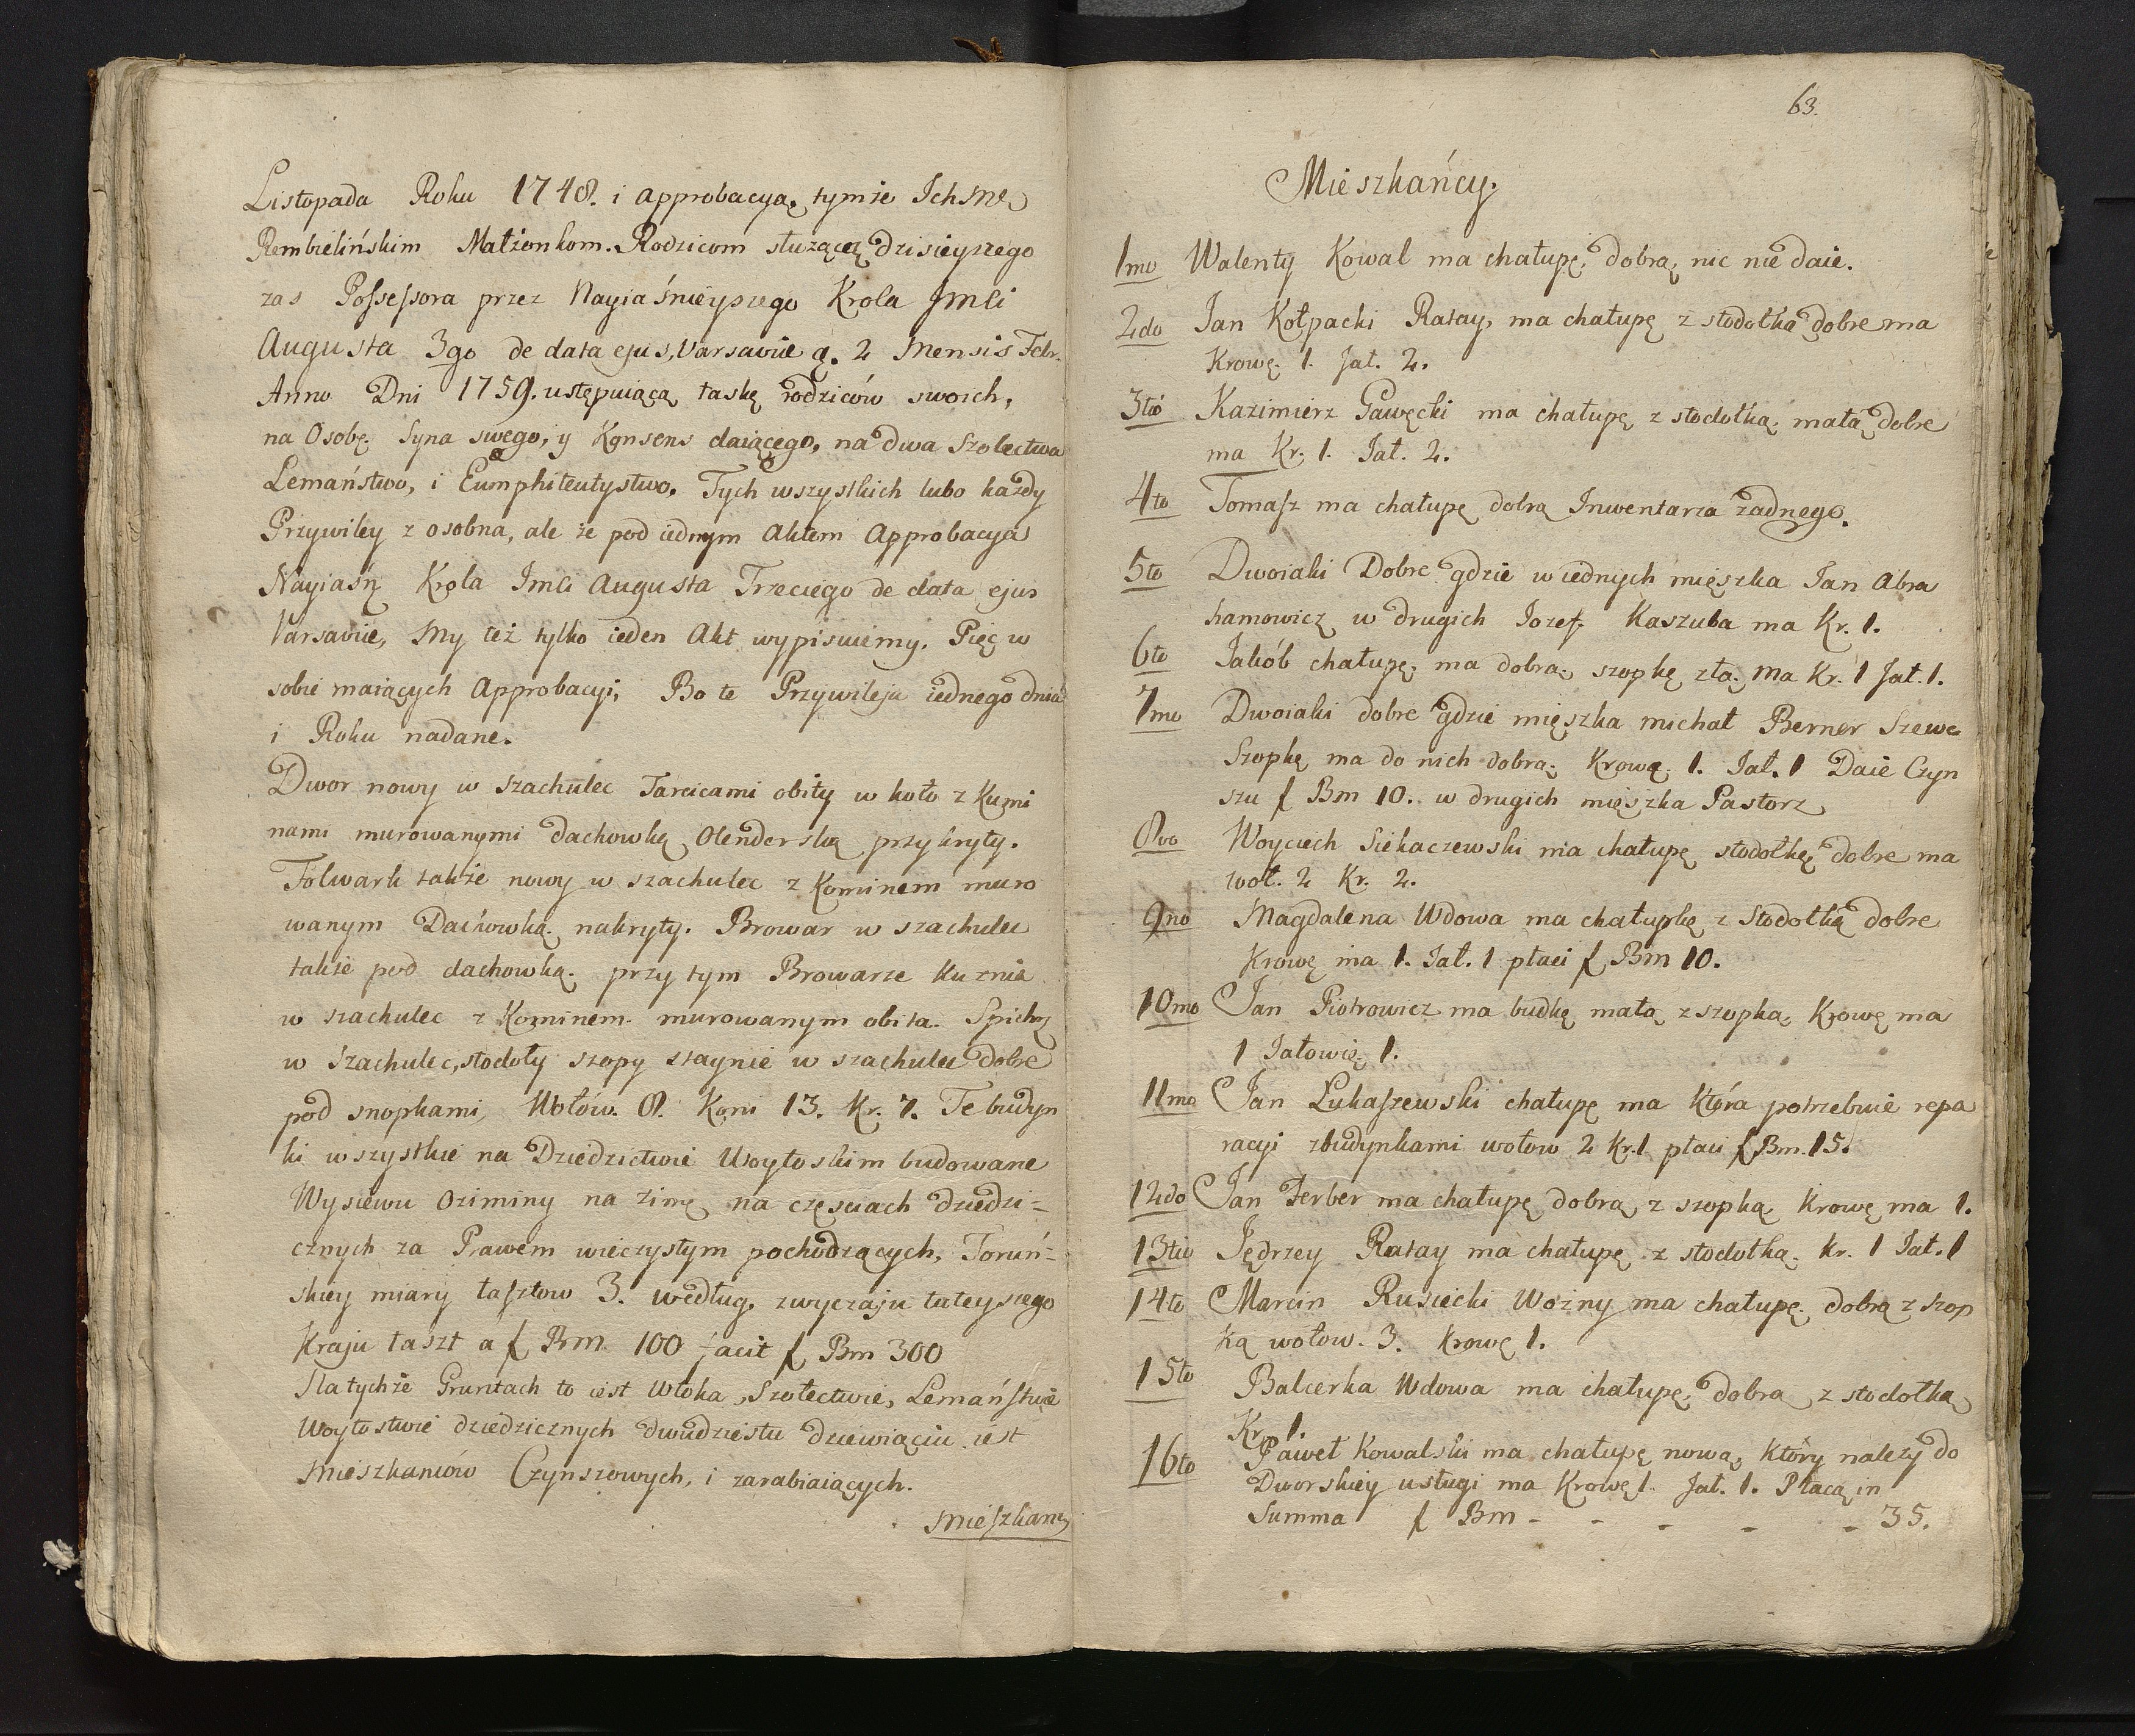 Listopada Roku 1748. i approbacyą tymże Ichmć
Rembielińskim Małżonkom. Rodzicom służącą dzisieyszego
zas Possessora przez Nayiaśnieyszego Krola Jmći
Augusta 3go de data ejus, Varsaviæ d. 2 Mensis Febr.
Anno Dni 1759. ustępuiącą łaskę rodziców swoich,
na Osobę Syna swego, y Konsens daiącego, na dwa Szolectwa
Lemaństwo, i Eumphiteutystwo. Tych wszystkich lubo każdy
Przywiley z osobna, ale że pod iednym Aktem Approbacya
Nayiaśn Krola Jmći Augusta Trzeciego de data ejus
Varsaviæ, My też tylko ieden Akt wypisuiemy. Pięc w
sobie maiących Approbacyi, Bo te Przywileja iednego dnia
i Roku nadane.
Dwor nowy w szachulec Tarcicami obity w koło z Kumi
nami murowanymi dachowką Olenderską przykryty.
Folwark także nowy w szachulec z Kominem muro
wanym Dachowką nakryty. Browar w szachulec
także pod dachowką. przy tym Browarze Kuznia
w szachulec z Kominem murowanym obita. Spichrz
w Szachulec, stodoły szopy staynie w szachulec dobre
pod snopkami, Wołów. 8. Koni 13. Kr. 7. Te budyn
ki wszystkie na Dziedzictwie Woytoskim budowane
Wysiewu oziminy na zimę na częsciach dziedzi=
cznych za Prawem wieczystym pochodzących, Toruń=
skiey miary łasztow 3. według zwyczaju tuteyszego
Kraju łaszt a f Bm. 100 facit f Bm 300
Na tychże Gruntach to iest Włoka, Szołectwie, Lemaństwie
Woytostwie dziedzicznych dwudziestu dziewiąciu iest
Mieszkancow Czynszowych, i zarabiaiących.
Mieszkancy
63.
Mieszkańcy.
1mo Walenty Kowal ma chałupę dobrą nic nie daie.
2do Jan Kołpacki Rataÿ, ma chałupę z stodołką dobre ma
Krowę 1. Jał. 2.
3tió Kazimierz Gawęcki ma chałupę z stodołką małą dobre
ma Kr. 1. Jał. 2.
4to Tomasz ma chałupę dobrą Inwentarza żadnego.
5to Dwoiaki Dobre gdzie w iednych mięszka Jan Abra
hamowicz w drugich Jozef Kaszuba ma Kr. 1.
6to Jakób chałupę ma dobrą, szopkę złą, Ma Kr. 1 Jał. 1.
7mo Dwoiaki dobre gdzie mięszka michał Berner Szewc
Szopkę ma do nich dobrą Krowę 1. Jał. 1 Daie Czyn
szu f Bm 10. w drugich mięszka Pastorz
8vo Woyciech Siekaczewski ma chałupę stodołkę dobre ma
woł. 2 Kr. 2.
9no Magdalena Wdowa ma chałupkę z Stodołką dobre
Krowę ma 1. Jał. 1 płaci f Bm 10.
10mo Jan Piotrowicz ma budkę małą z szopką, Krowę ma
1 Jałowię 1.
11mo Jan Łukaszewski chałupę ma która potrzebuie repa
racyi z budynkami wołow 2 Kr. 1 płaci f Bm. 15.
12do Jan Ferber ma chałupę dobrą z szopką Krowę ma 1.
13tio Jędrzey Rataÿ ma chałupę z stodołką. Kr. 1 Jał. 1
14to Marcin Rusiecki Wozny ma chałupę dobrą z szop
ką wołow. 3. Krowę 1.
15to Balcerka Wdowa ma chałupę dobrą z stodołką
Kr. 1.
16to Paweł Kowalski ma chałupę nową, który nalezy do
Dworskiey usługi ma Krowę 1. Jał. 1. Płacą in
Summa f Bm - - - - - 35.